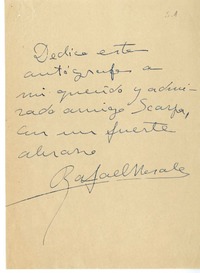 Dedico este
autógrafo a
mi querido y admi-
rado amigo Scarpa,
con un fuerte
abrazo
Rafael